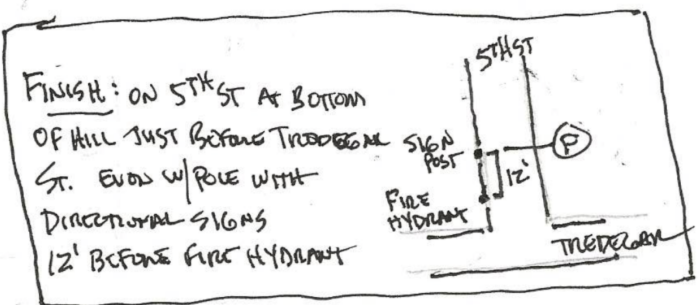 FINISH: ON 5TH ST AT BOTTOM
OF HILL JUST BEFORE TREDEGAR
ST. EVEN W/ POLE WITH
DIRECTIONAL SIGNS
12' BEFORE FIRE HYDRANT
5TH ST
SIGN
POST
F
12'
FIRE
HYDRANT
TREDEGAR